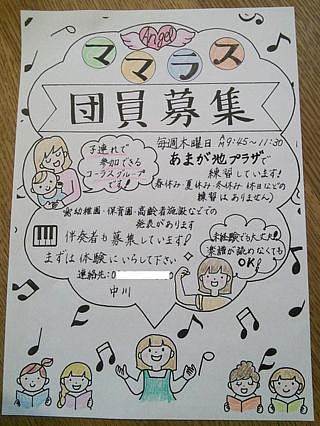 Angel
ママラス
団員募集
子連れで
参加できる
コーラスグループ
です!
毎週木曜日 AM9:45~11:30
あまが池プラザで
練習しています!
(春休み・夏休み・冬休み・休日などの
練習はありません)
幼稚園・保育園・高齢者施設などでの
発表があります
伴奏者も募集しています!
まずは体験にいらして下さい
連絡先:0
中川
未経験でも大丈夫!
楽譜が読めなくても
OK!